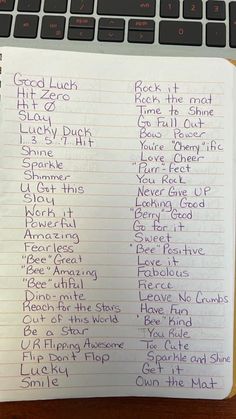 Good Luck
Hit Zero
Hit Ø
Slay
Lucky Duck
1..3..5..7 Hit
Shine
Sparkle
Shimmer
U Got this
Slay
Work it
Powerful
Amazing
Fearless
"Bee" Great
"Bee" Amazing
"Bee" utiful
Dino-mite
Reach for the Stars
Out of this World
Be a Star
UR Flipping Awesome
Flip Dont Flop
Lucky
Smile
Rock it
Rock the mat
Time to Shine
Go Full Out
Bow Power
You're "Cherry"ific
Love Cheer
"Purr-Fect
You Rock
Never Give UP
Looking Good
"Berry" Good
Go for it
Sweet
"Bee" Positive
Love it
Fabolous
Fierce
Leave No Crumbs
Have Fun
"Bee" Kind
You Rule
Too Cute
Sparkle and Shine
Get it
Own the Mat